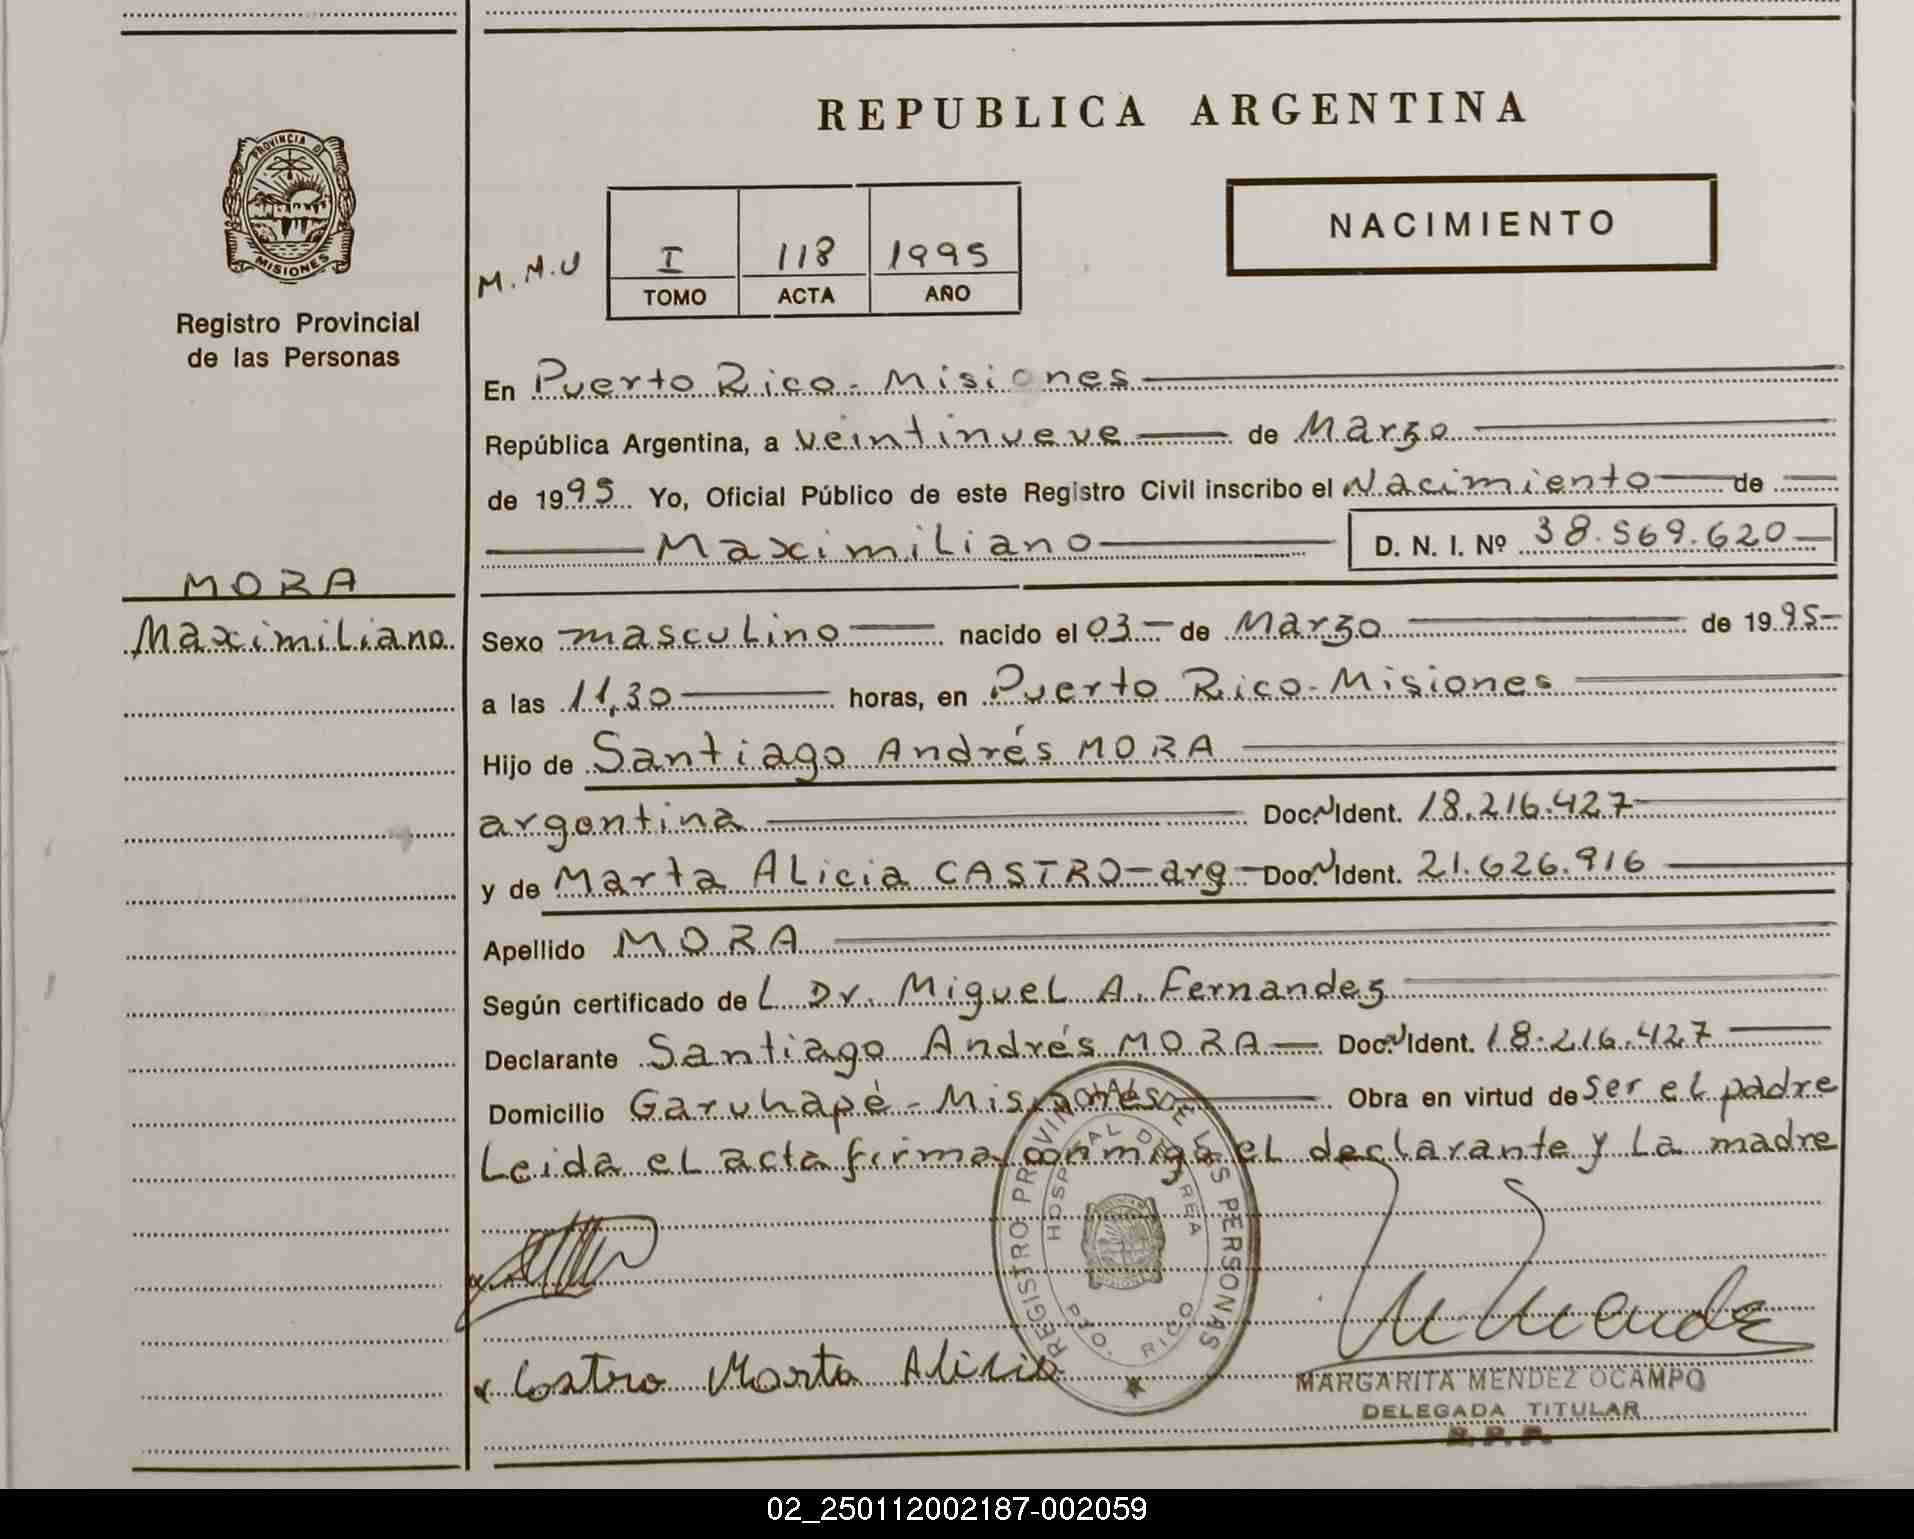 REPUBLICA ARGENTINA
PROVINCIA D
MISIONES
Registro Provincial
de las Personas
NACIMIENTO
M.M.U
I 118 1995
TOMO ACTA AÑO
En Puerto Rico - Misiones
República Argentina, a veintinueve de Marzo
de 1995 Yo, Oficial Público de este Registro Civil inscribo el Nacimiento de
Maximiliano D. N. I. Nº 38.569.620
MORA
Maximiliano
Sexo masculino nacido el 03 de Marzo de 1995
a las 11,30 horas, en Puerto Rico - Misiones
Hijo de Santiago Andrés MORA
argentina Doc. Ident. 18.216.427
y de Marta Alicia CASTRO - arg - Doc. Ident. 21.626.916
Apellido MORA
Según certificado del Dr. Miguel A. Fernandez
Declarante Santiago Andrés MORA Doc. Ident. 18.216.427
Domicilio Garuhapé - Misiones Obra en virtud de ser el padre
Leida el acta firma conmigo el declarante y la madre
REGISTRO PROVINCIAL DE LAS PERSONAS
HOSPITAL DE AREA
PTO. RICO
x Castro Marta Alicia
MARGARITA MENDEZ OCAMPO
DELEGADA TITULAR
R. P. P.
02_250112002187-002059